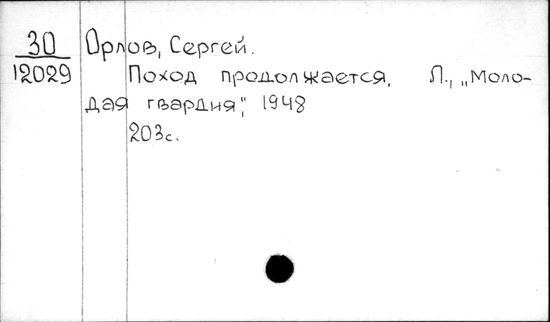 30
12029
Орлов, Сергей.
Поход продолжается, Л., „Моло-
дая гвардия", 1948
203с.